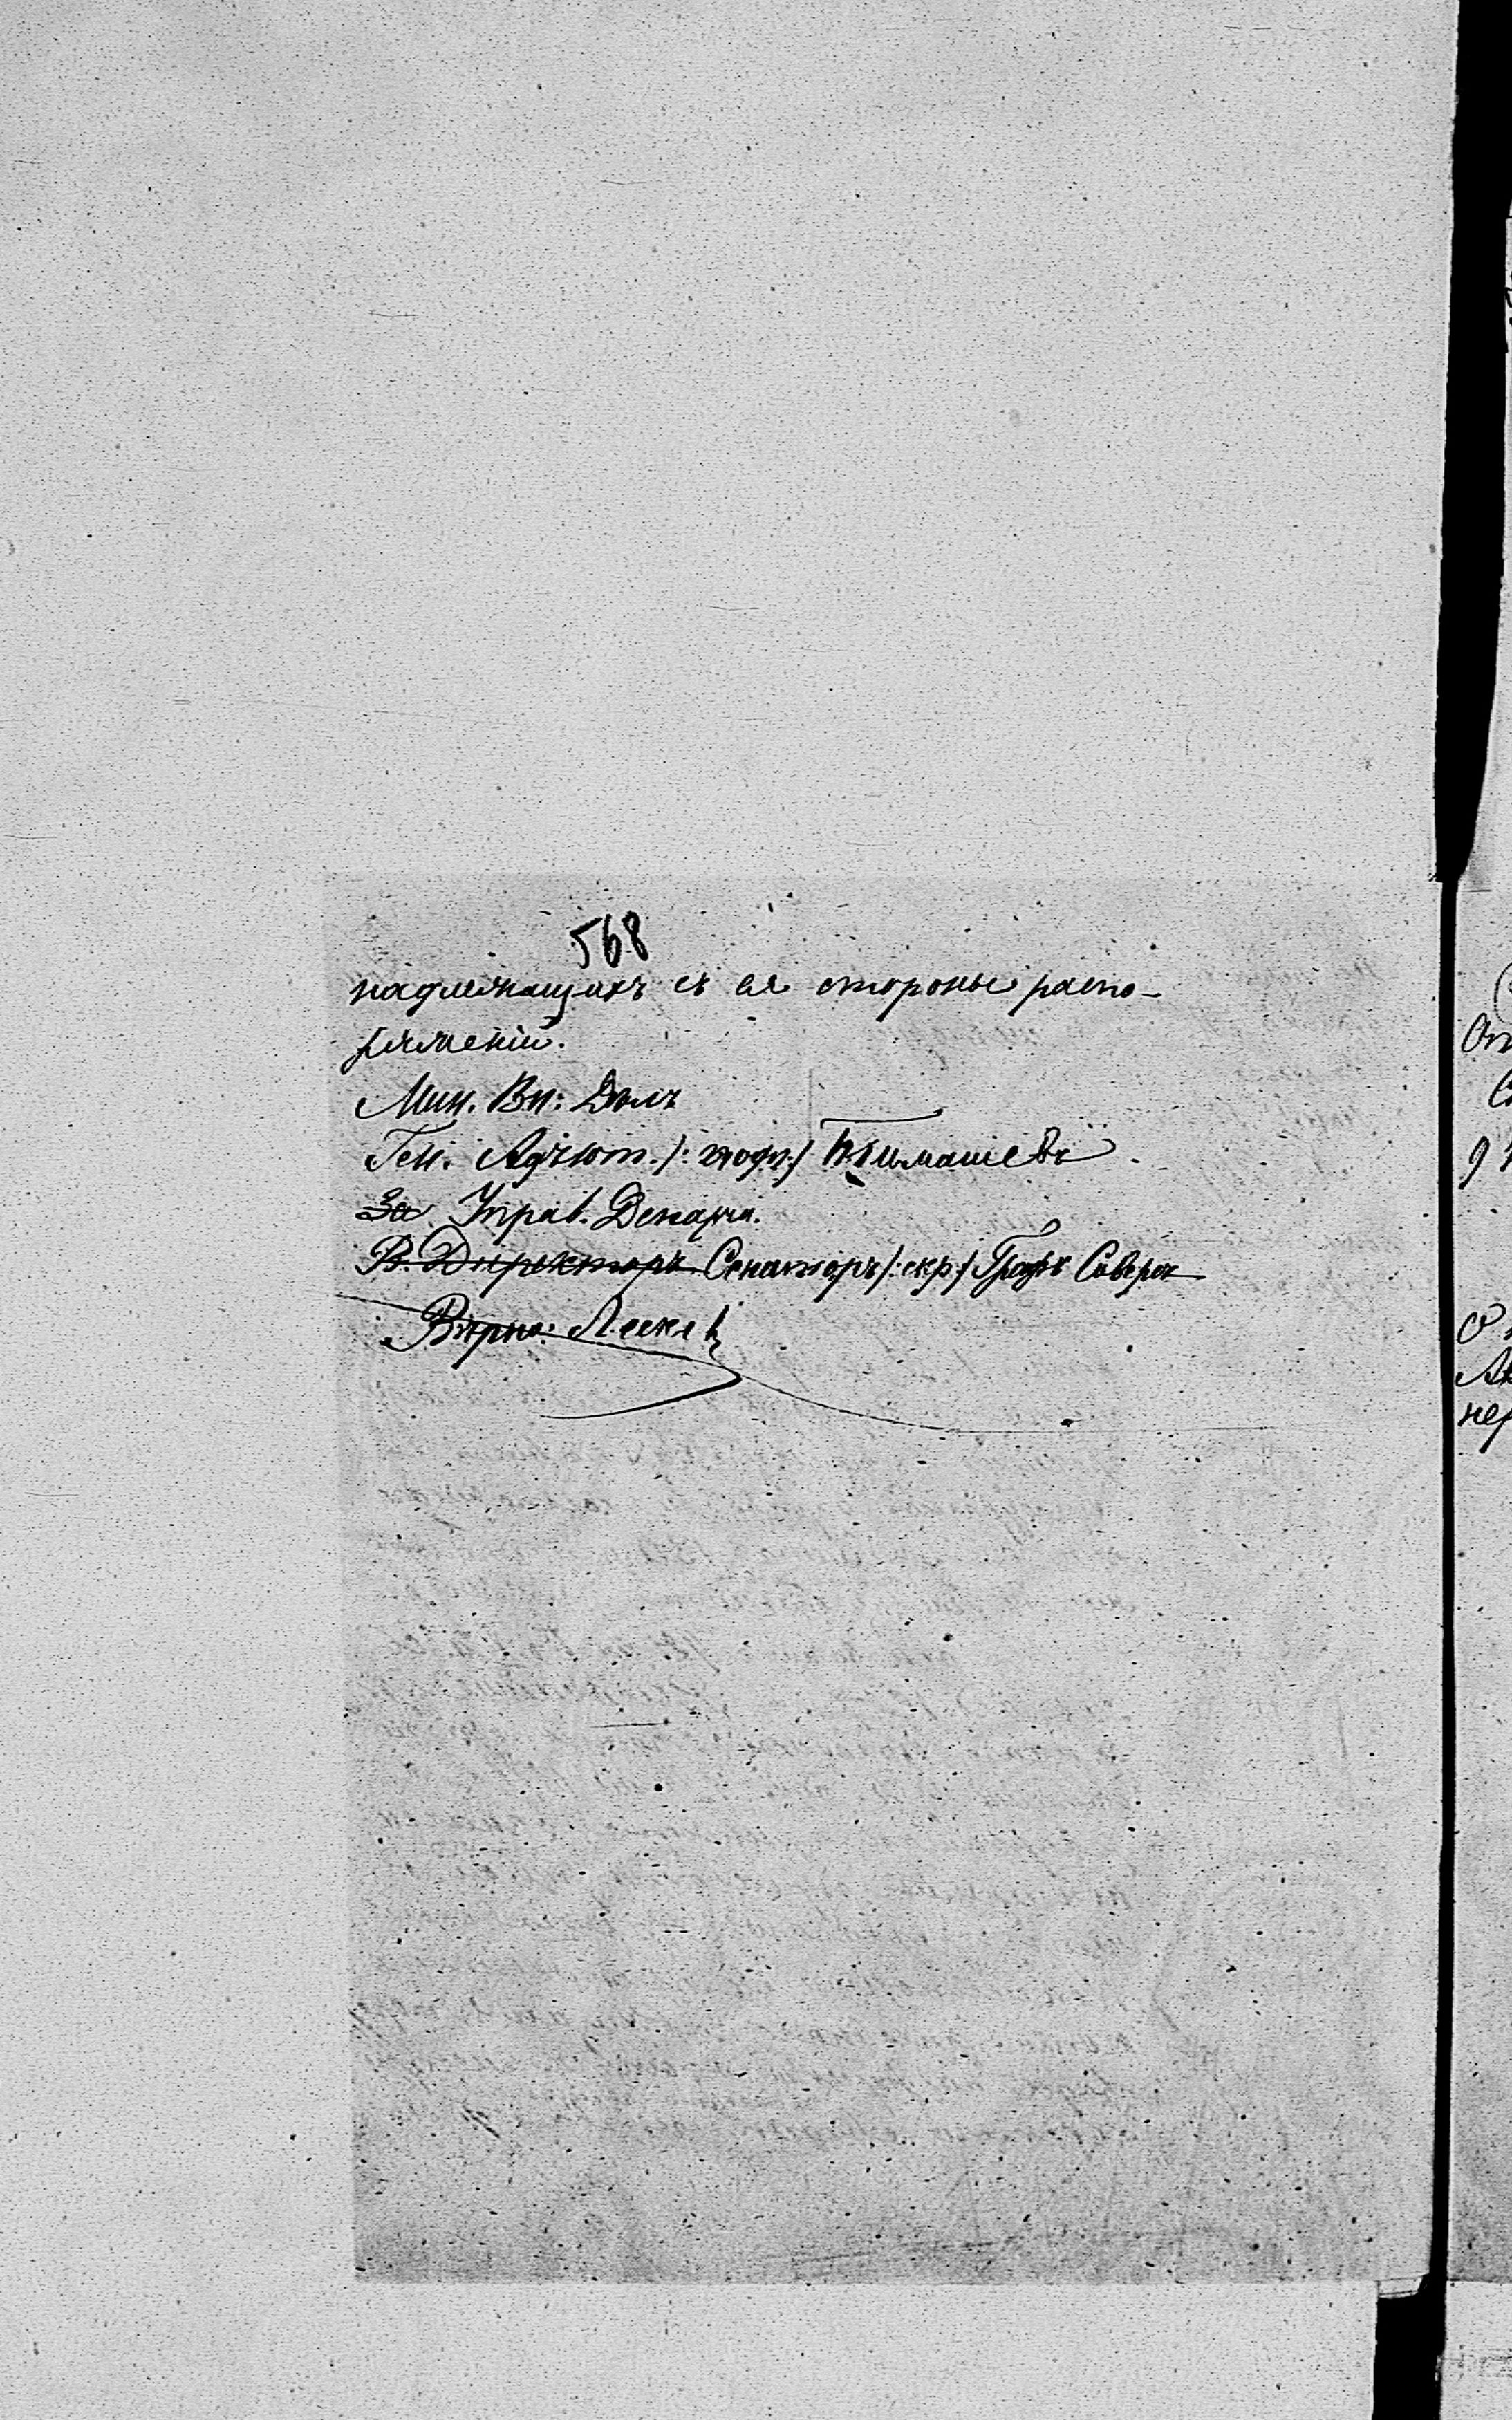 568
надлежащихъ съ ея стороны распо-
ряженій.
Мин. Вн: Дѣлъ
Ген. Адъют./: подп:/ Тимашевъ
За Управ. Департ.
В. Директоръ Сенаторъ/:скр:/ Графъ Сиверсъ
Вѣрно:
От
О
Ак
нер